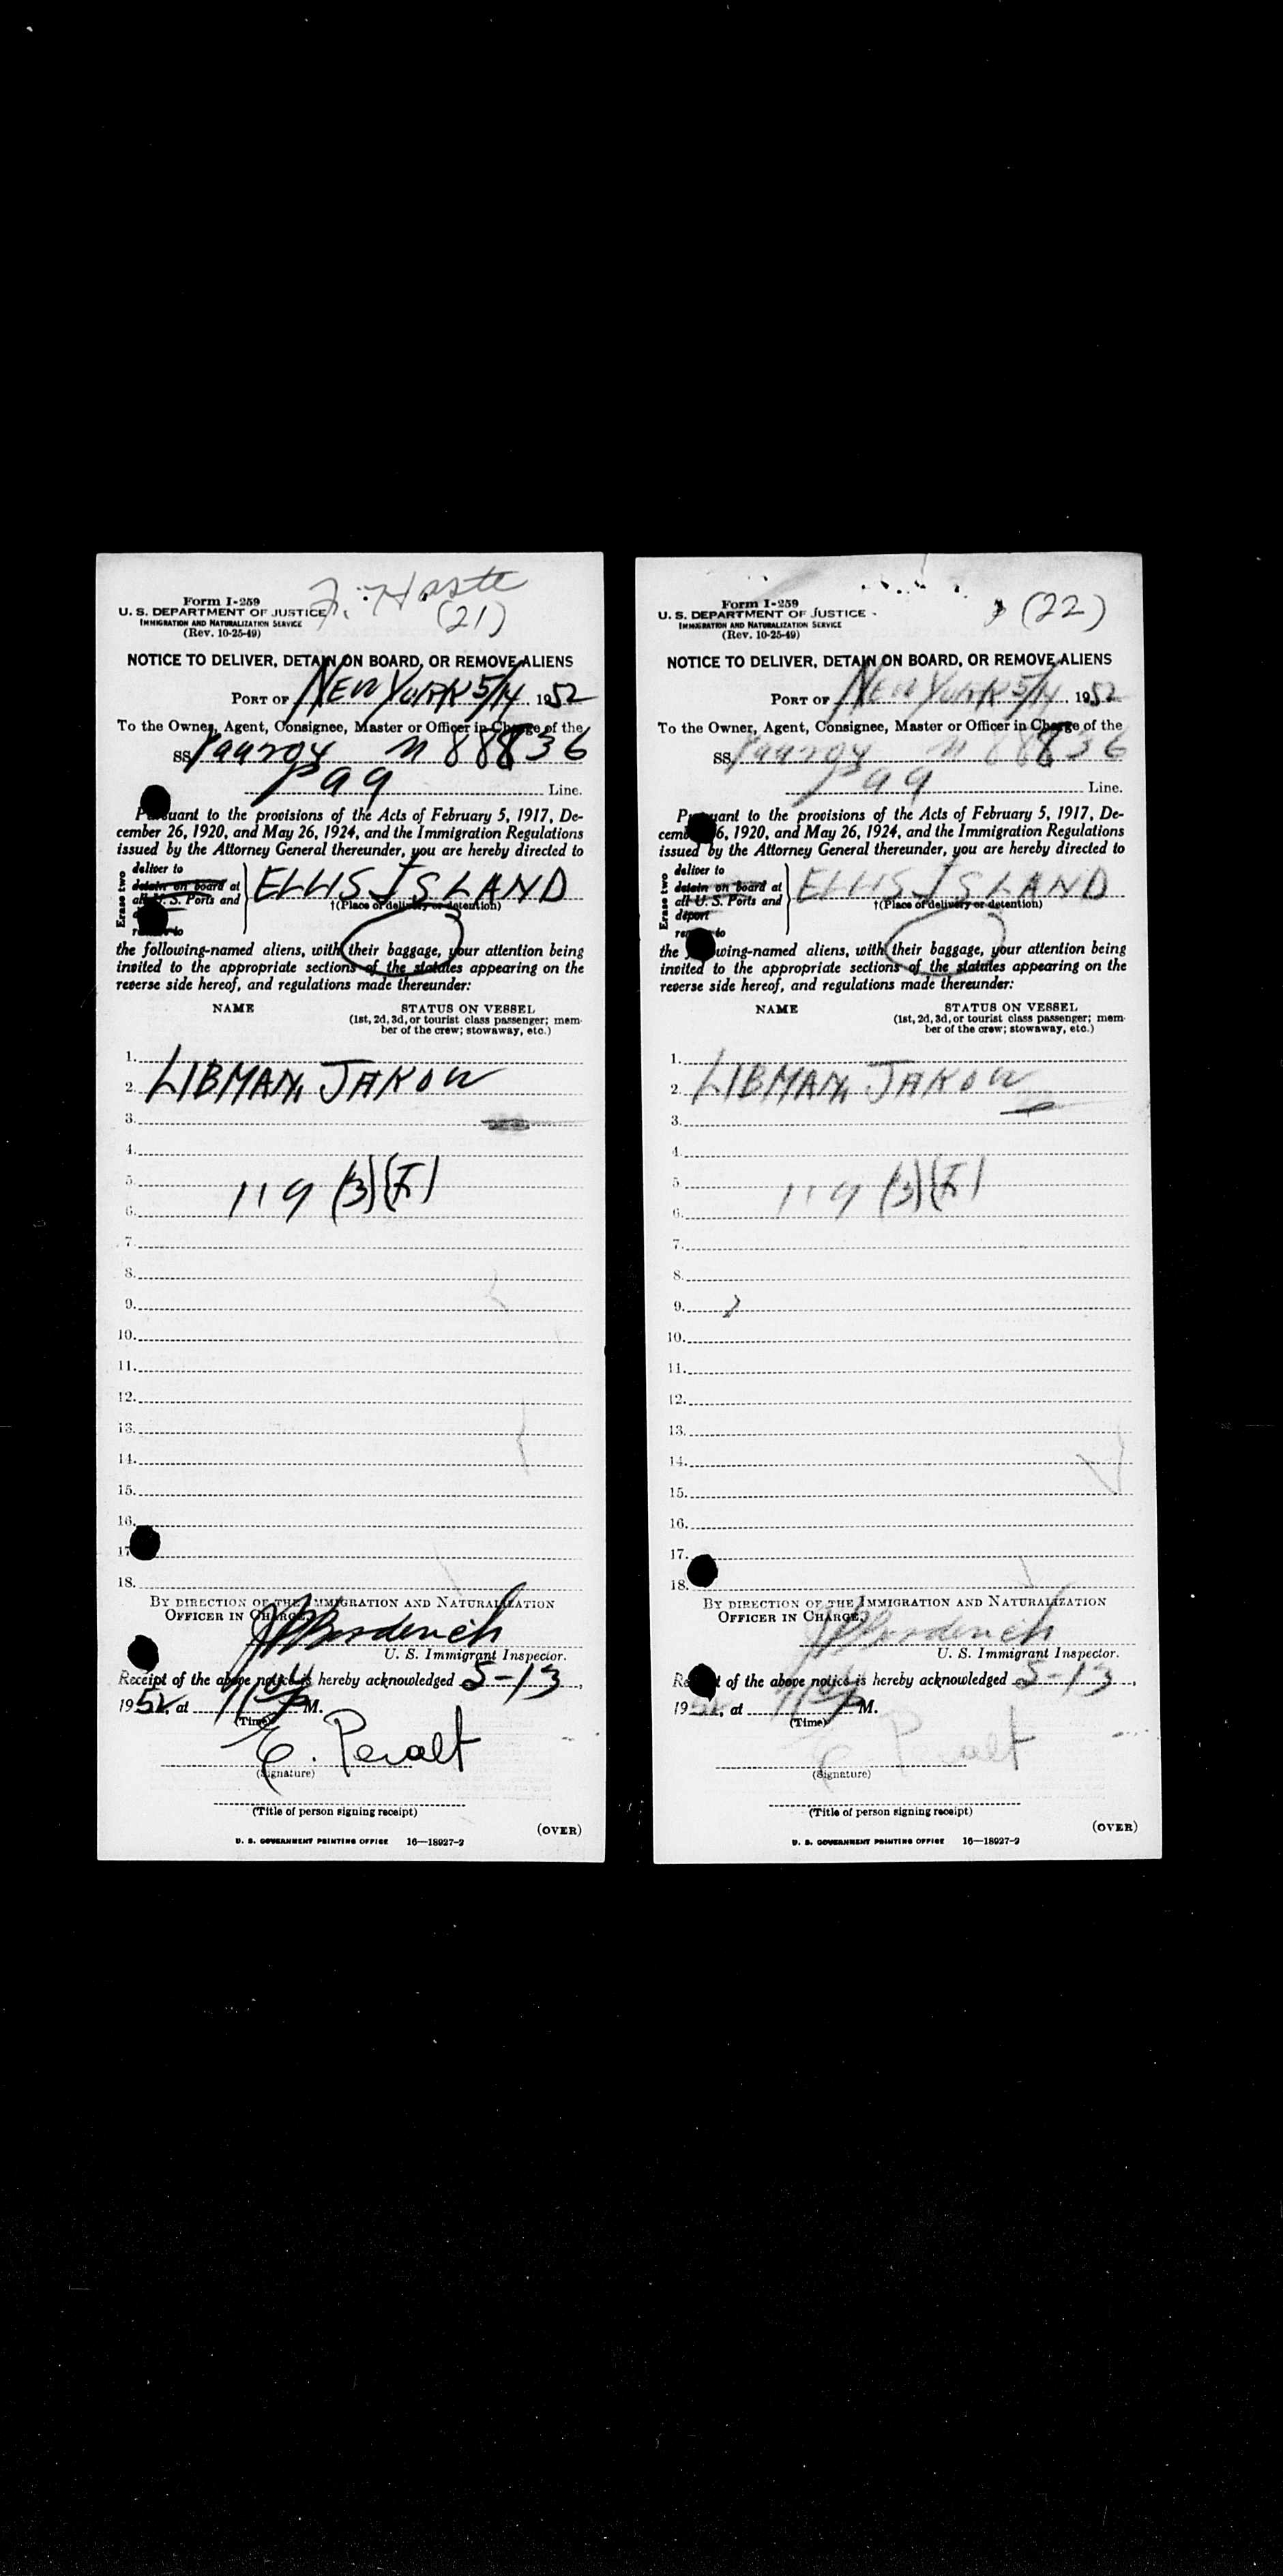 Form I-259
U. S. DEPARTMENT OF JUSTICE
IMMIGRATION AND NATURALIZATION SERVICE
(Rev. 10-25-49)
(21)
NOTICE TO DELIVER, DETAIN ON BOARD, OR REMOVE ALIENS
PORT OF NEW YORK 5/14, 1952
To the Owner, Agent, Consignee, Master or Officer in Charge of the
SS N 88836
Line.
Pursuant to the provisions of the Acts of February 5, 1917, De-
cember 26, 1920, and May 26, 1924, and the Immigration Regulations
issued by the Attorney General thereunder, you are hereby directed to
Erase two
deliver to
detain on board at
all U. S. Ports and
ELLIS ISLAND
†(Place of delivery or detention)
the following-named aliens, with their baggage, your attention being
invited to the appropriate sections of the statutes appearing on the
reverse side hereof, and regulations made thereunder:
NAME STATUS ON VESSEL
(1st, 2d, 3d, or tourist class passenger; mem-
ber of the crew; stowaway, etc.)
1.
2. LIBMAN, JAKOW
3.
4.
5. 119 (3)(E)
6.
7.
8.
9.
10.
11.
12.
13.
14.
15.
16.
17
18.
BY DIRECTION OF THE IMMIGRATION AND NATURALIZATION
OFFICER IN CHARGE
U. S. Immigrant Inspector.
Receipt of the above notice is hereby acknowledged 5-13,
1952, at M.
(Time)
E. Peralt
(Signature)
(Title of person signing receipt)
(OVER)
U. S. GOVERNMENT PRINTING OFFICE 16—18927-2
Form I-259
U. S. DEPARTMENT OF JUSTICE
IMMIGRATION AND NATURALIZATION SERVICE
(Rev. 10-25-49)
(22)
NOTICE TO DELIVER, DETAIN ON BOARD, OR REMOVE ALIENS
PORT OF NEW YORK 5/14, 1952
To the Owner, Agent, Consignee, Master or Officer in Charge of the
SS N 88836
Line.
Pursuant to the provisions of the Acts of February 5, 1917, De-
cember 26, 1920, and May 26, 1924, and the Immigration Regulations
issued by the Attorney General thereunder, you are hereby directed to
Erase two
deliver to
detain on board at
all U. S. Ports and
deport
ELLIS ISLAND
†(Place of delivery or detention)
the following-named aliens, with their baggage, your attention being
invited to the appropriate sections of the statutes appearing on the
reverse side hereof, and regulations made thereunder:
NAME STATUS ON VESSEL
(1st, 2d, 3d, or tourist class passenger; mem-
ber of the crew; stowaway, etc.)
1.
2. LIBMAN, JAKOW
3.
4.
5 119 (3)(E)
6.
7.
8.
9.
10.
11.
12.
13.
14.
15.
16.
17.
18.
BY DIRECTION OF THE IMMIGRATION AND NATURALIZATION
OFFICER IN CHARGE,
U. S. Immigrant Inspector.
Receipt of the above notice is hereby acknowledged 5-13,
1952, at M.
(Time)
E. Peralt
(Signature)
(Title of person signing receipt)
(OVER)
U. S. GOVERNMENT PRINTING OFFICE 16—18927-2